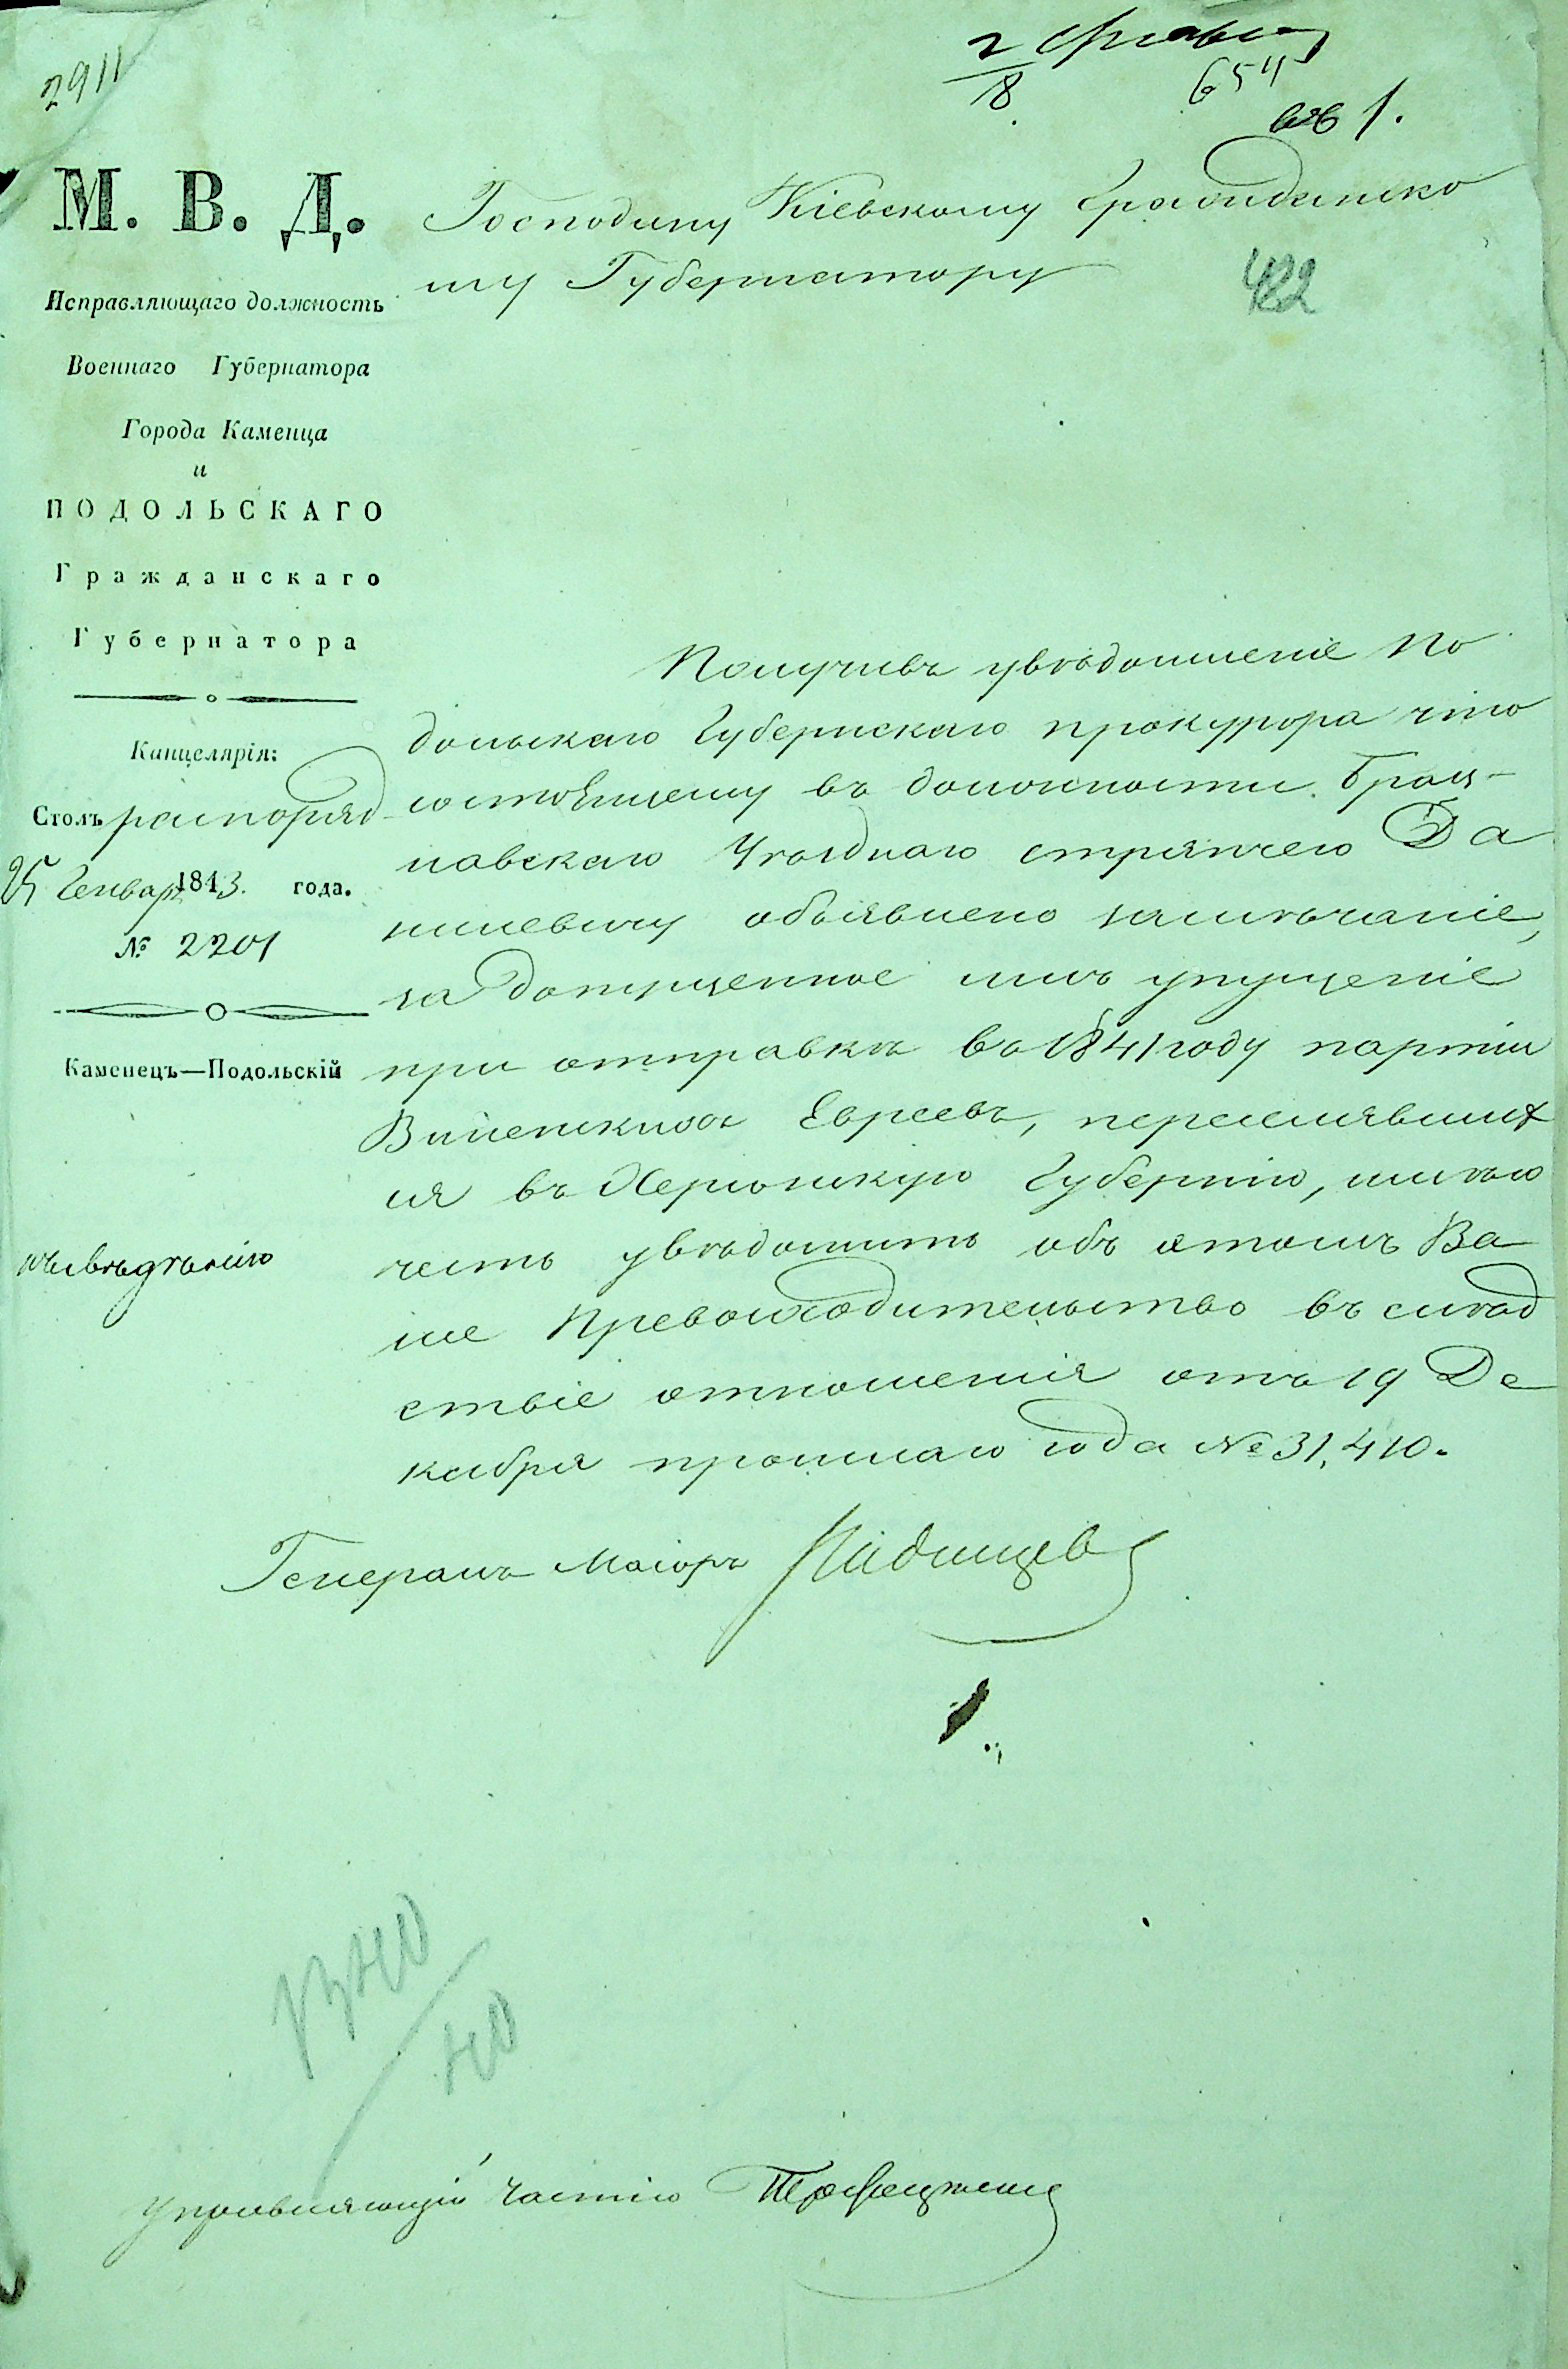 2911
2 Февраля
8
654
М. В. Д.
Исправляющаго должность
Военнаго Губернатора
Города Каменца
и
ПОДОЛЬСКАГО
Гражданскаго
Губернатора
Канцелярія:
Столъ распоряд
25 Генвар 1843. года.
№ 2201
Каменецъ—Подольскій
Господину Кіевскому Гражданско
му Губернатору
Получивъ увѣдомленіе По
дольскаго Губернскаго прокурора что
состоящему въ должности Брац-
лавскаго Уѣзднаго стряпчего Да
нилевичу объявлено замѣчаніе,
за допущенное имъ упущеніе
при отправкѣ въ 1841 году партіи
Виленскихъ Евреевъ, переселявших
ся въ Херсонскую Губернію, имѣю
честь увѣдомить объ этомъ Ва
ше Превосходительство въ слѣд
ствіе отношенія отъ 19 Де
кабря прошлаго года № 31,410.
Генералъ Маіоръ
Управляющій Частію